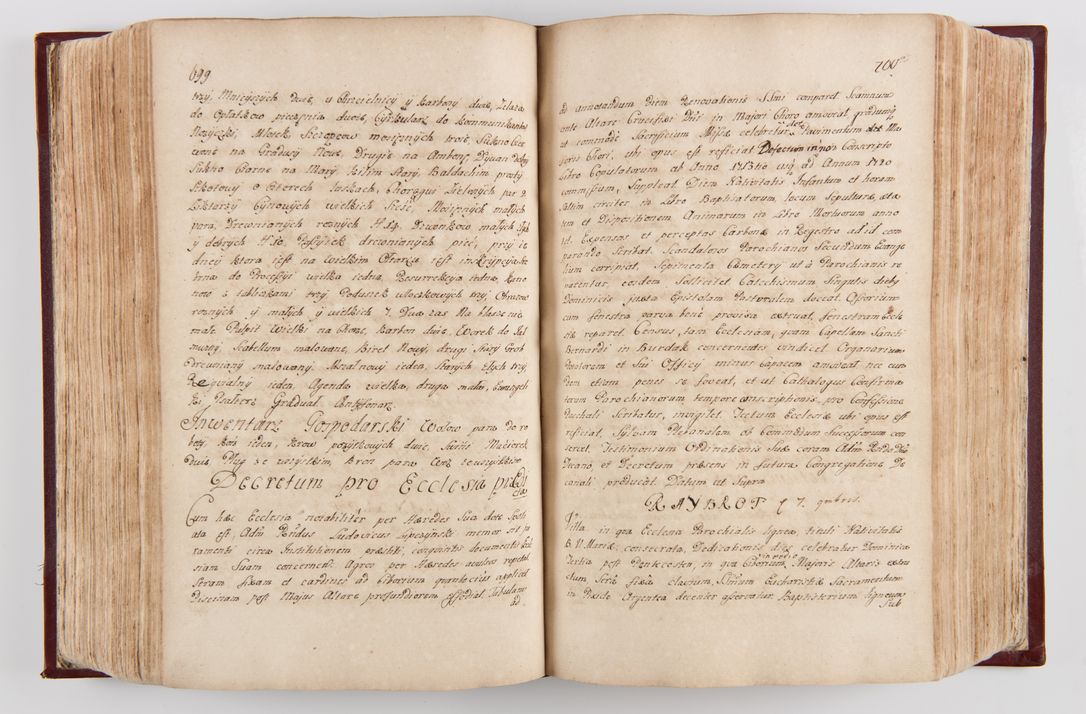 699
trzy, Mnieyszych dwie, u Chrzcielnicy y Karbony dwie, Zelaza
do Opłatkow pieczenia dwoie, Cyrkularz do Kommunikantow
Nożyczki, Młotek, Szczypcow mosiężnych troie, Sukno Czer
wone na Gradusy Nowe, Drugie na Ambonę, Dywan Dobry
Sukno Czarne na Mary, Kilim Stary, Baldachim prosty
o czterech laskach, Choragwi Zielonych par 2
Liktarzy Cynowych wielkich sześć, Mosiężnych małych
para, Drewnianych roznych Nr 14. Dzwonkow małych
y dobrych Nro 10. Passyiek drewnianych pięć, przy ie
dney ktora iest na wielkim Ołtarzu iest inskrypcya
brna do Processyi wielka iedna, Resurrekcya iedna, Kano
now z tabliczkami trzy, Poduszek włoczkowych trzy, Obrazow
roznych y małych y wielkich 7. Dwa zas na blasze nie
małe, Pulpit Wielki na Chorze, Karbon dwie, Worek do Jał
mużny, Scabellum malowane, Biret Nowy, drugi Stary Grob
Drewniany malowany. Mszał nowy ieden, starych Złych trzy,
Requialny ieden, Agenda wielka, druga mała,
ki Psalterz Graduał Antyfonarz.
Inwentarz Gospodarski Wołow para do ro
boty, Koń ieden, Krow pożytkowych dwie, Swinie Macierek
dwie, Pług ze wszystkim, Bron para wenz zewszystkim
Decretum pro Ecclesia prædi
cta
Cum hæc Ecclesia notabiliter per Hæredes Sua dote spoli
ata est, Adm Rndus Ludovicus Lipczynski memor sit ju
ramenti circa Institutionem præstiti, conquisitis documentis Eccle
siam Suam concernen. Agros per Hæredes avulsos repetat
Seram fixam et cardines ad Ciborium quantocius applicet
Piscinam post Majus Altare profundiorem effodiat Tabulam
ad

700
ad annotandum Diem Renovationis SSmi comparet Scamnum
ante Altare Crucifixi Dni in Majori Choro amoveat, gradumq.
ut commode Sacrificium Missæ celebretur, det Pavimentum Ma
joris Chori, ubi opus est reficiat Defectum in non Conscripto
Libro Copulatorum ab Anno 1713tio usq. ad Annum 1720
commissum, suppleat Diem Nativitatis Infantum et horam
saltim circiter in Libro Baptisatorum, locum sepulturæ, æta
tem et Dispositionem Animarum in Libro Mortuorum anno
tet. Expensas et perceptas Carbonæ in Regestro ad id com
parando scribat. Scandalosos Parochianos Secundum Evange
lium corripiat, Sepimenta Cæmeterij ut à Parochianis re
parentur, eosdem Sollicitet Catechismum Singulis diebus
Dominicis juxta Epistolam Pastoralem doceat. Ossorium
cum fenestra parva bene provisa extruat, fenestram Eccle
siæ reparet. Census, tam Ecclesiam, quam Capellam Sancti
Bernardi in Burdak concernentes vindicet Organarium
Seniorem et Sui Officij minus capacem amoveat nec eun
dem etiam penes se foveat, et ut Cathalogus Confirma
torum Parochianorum tempore conscriptionis pro Confessione
Paschali Scribatur, invigilet. Tectum Ecclesiæ ubi opus est
reficiat, Sylvam Plebanalem ad commodum Successorum con
servet. Testimonium Ordinationis Suæ coram Adm Rndo Dno
Decano et Decretum præsens in futura Congregatione De
canali producat. Datum ut Supra
RAYBROT d 7. 9mbris.
Villa in qua Ecclesia Parochialis lignea tituli Nativitatis
B. V. Mariæ, consecrata, Dedicationis dies celebratur Dominica
Tertia post Pentecosten, in qua Ciborium in medio Majoris Altaris extru
ctum Serâ fixâ clausum, SSmum Eucharistiæ Sacramentum
in Pixide Argentea decenter asservatur. Baptisterium ligneum
Sub